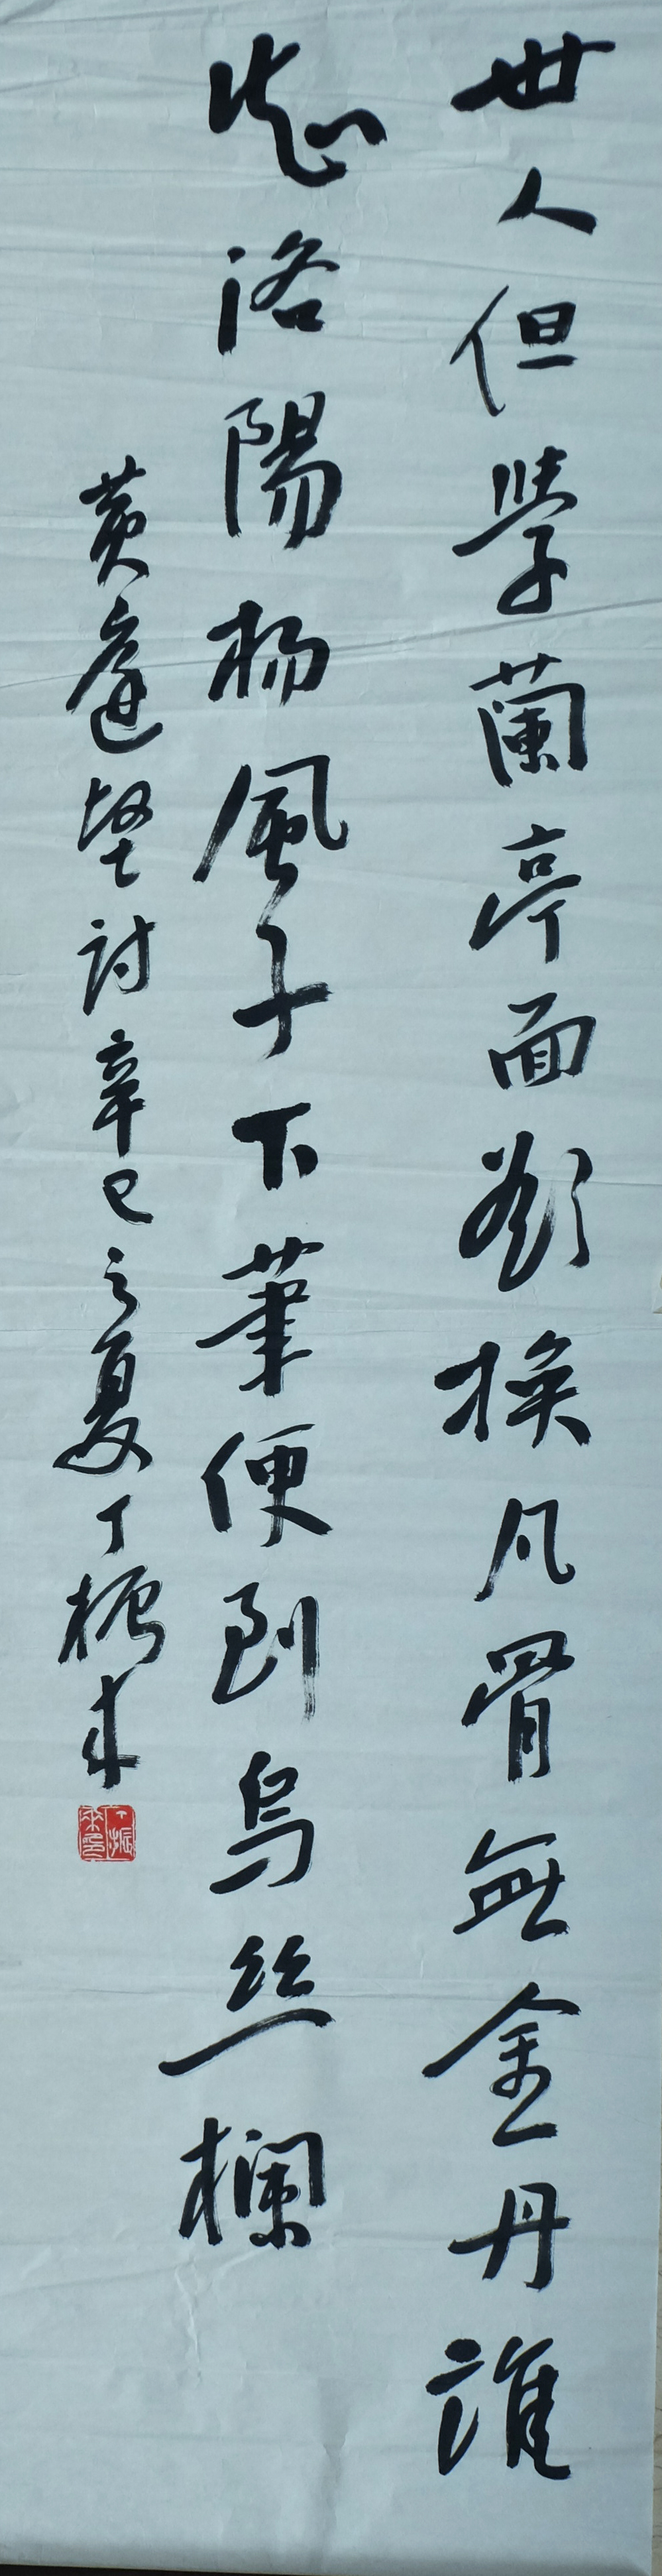 世人但學蘭亭面欲換凡骨無金丹誰
知洛陽楊風子下筆便到烏丝欄
黄庭堅討辛巳之夏丁振来
丁振来印